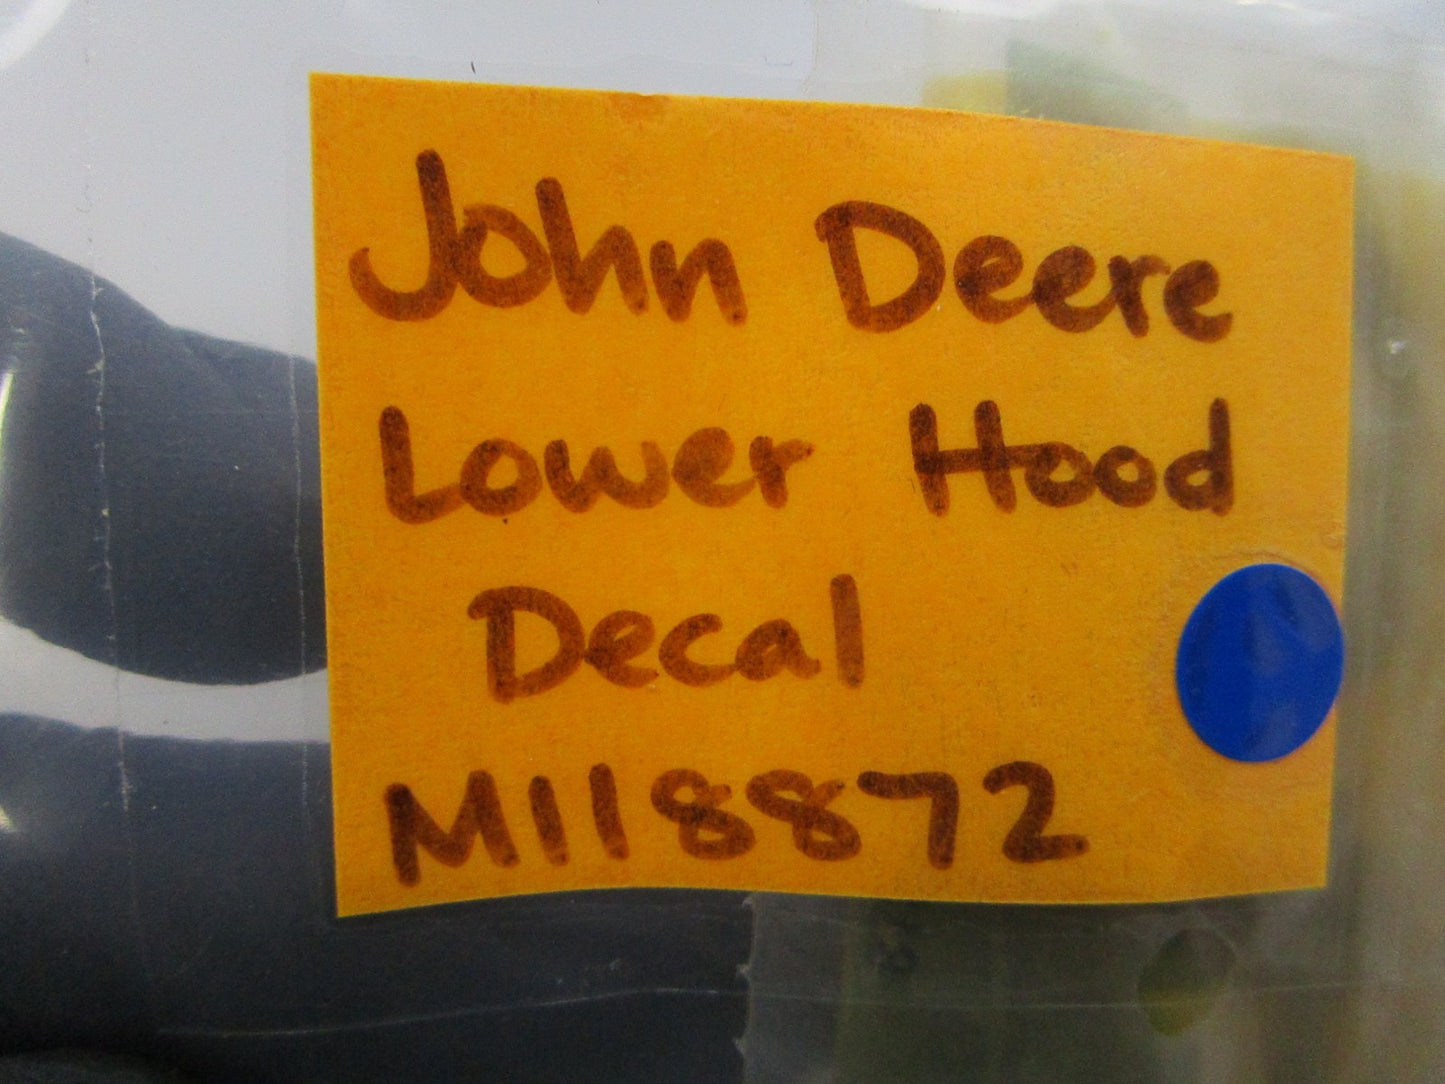 John Deere
Lower Hood
Decal
M118872